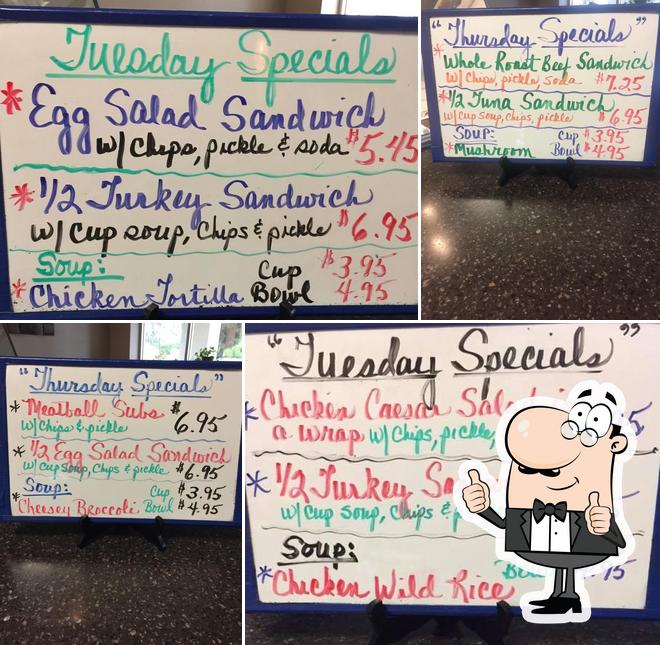 Tuesday Specials
* Egg Salad Sandwich
w/ Chips, pickle & soda $5.45
* 1/2 Turkey Sandwich
w/ Cup soup, Chips & pickle $6.95
Soup: Cup $3.95
* Chicken Tortilla Bowl 4.95
"Thursday Specials"
* Whole Roast Beef Sandwich
w/ Chips, pickle, soda $7.25
* 1/2 Tuna Sandwich
w/ cup soup, chips, pickle $6.95
Soup: Cup $3.95
* Mushroom Bowl $4.95
"Thursday Specials"
* Meatball Subs $
w/ Chips & pickle 6.95
* 1/2 Egg Salad Sandwich
w/ Cup Soup, Chips & pickle $6.95
* Soup: Cup $3.95
Cheesey Broccoli Bowl $4.95
"Tuesday Specials"
* Chicken Caesar
a wrap w/ Chips, pickle,
* 1/2 Turkey
w/ Cup Soup, Chips &
Soup:
* Chicken Wild Rice